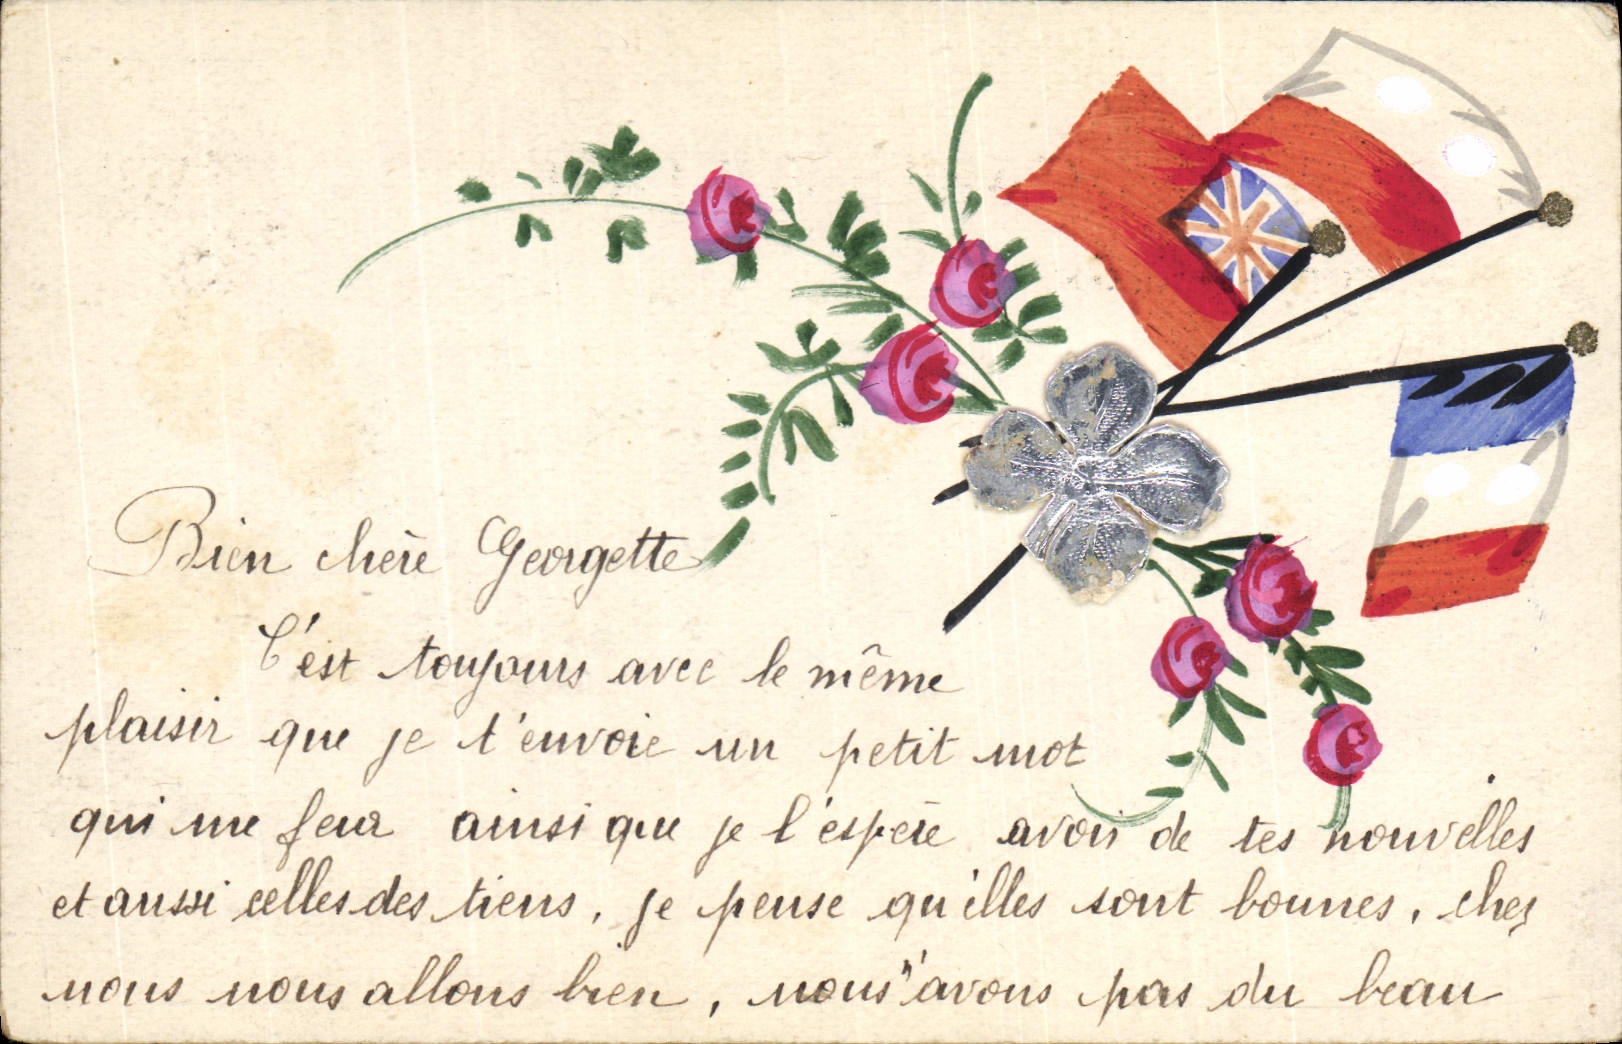 Bien chère Georgette
C'est toujours avec le même
plaisir que je t'envoie un petit mot
qui me fera ainsi que je l'espère avoir de tes nouvelles
et aussi celles des tiens, je pense qu'elles sont bonnes, chez
nous nous allons bien, nous n'avons pas du beau